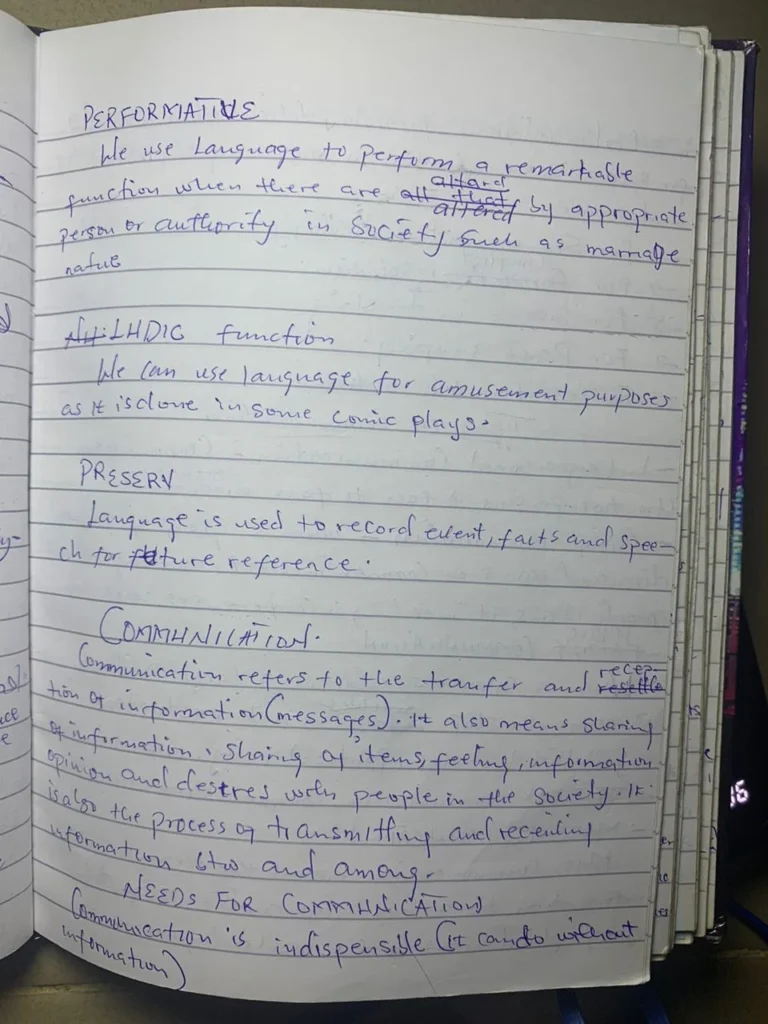 PERFORMATIVE
We use Language to perform a remarkable
function when there are altard by appropriate
person or authority in Society such as marriage
native
LHDIC function
We can use language for amusement purposes
as it is done in some comic plays.
PRESERV
Language is used to record event, facts and spee-
ch for future reference.
COMMUNICATION.
Communication refers to the tranfer and recep-
tion of information (messages). It also means sharing
of information, sharing of items, feeling, information
opinion and desires with people in the society. It
is also the process of transmitting and receiling
information btw and among.
NEEDS FOR COMMUNICATION
Communication is indispensible (it cando without
information)